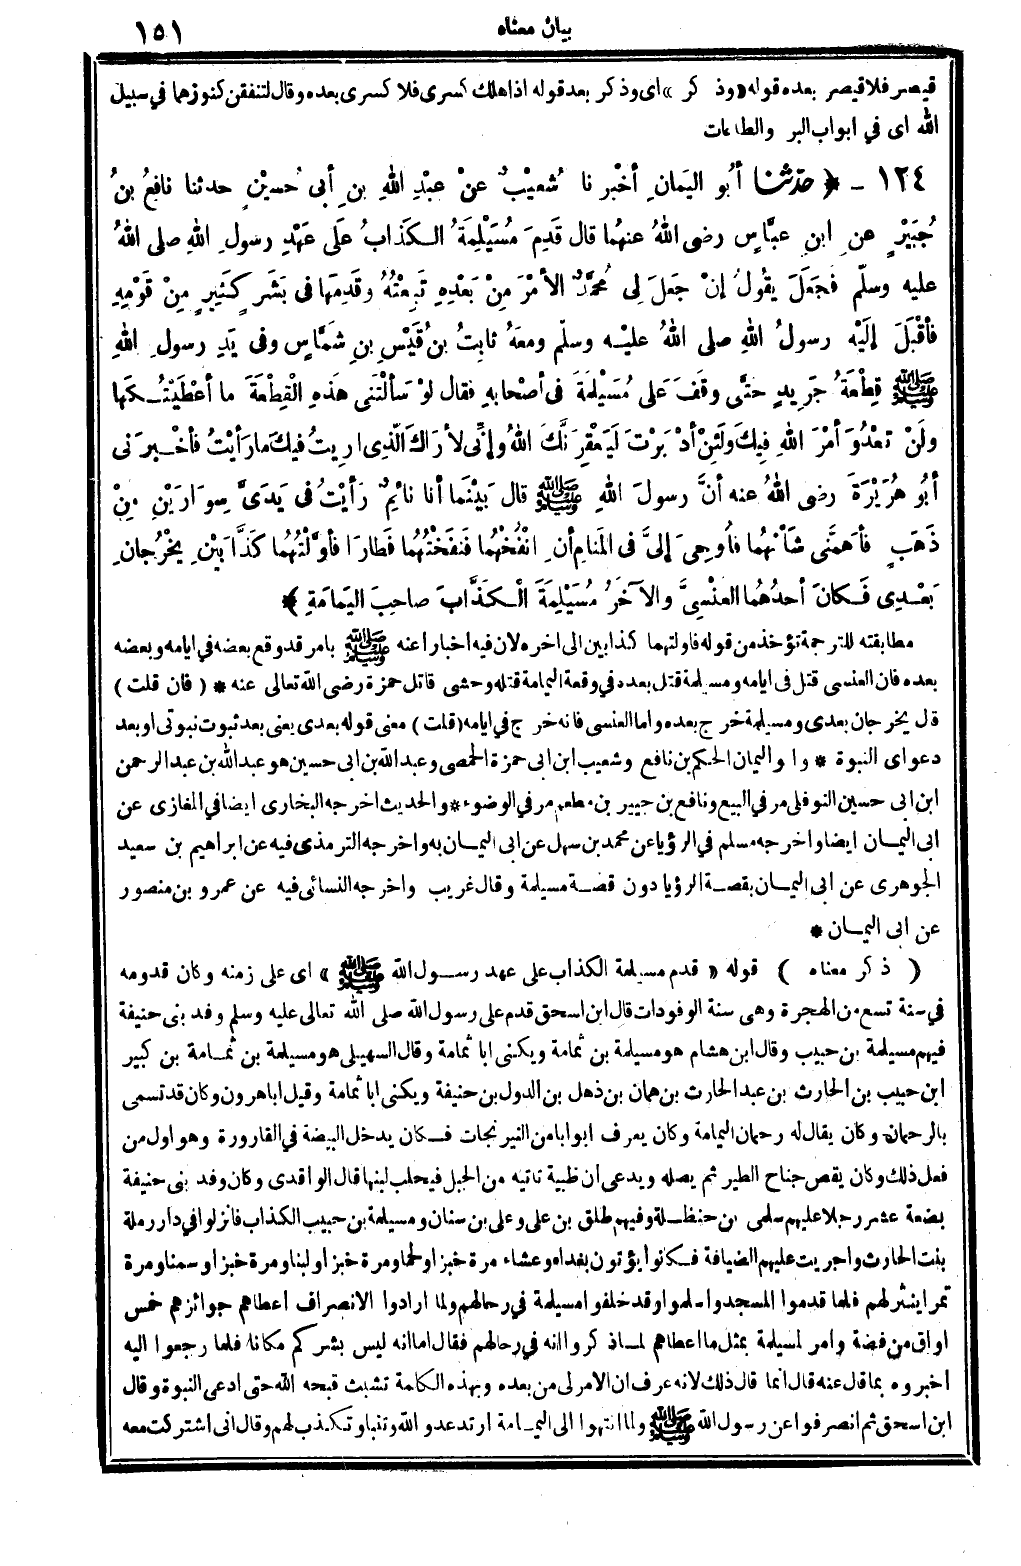 بيان معناه
١٥١
قيصر فلا قيصر بعده قوله «وذكر» اى وذكر بعد قوله اذا هلك كسرى فلا كسرى بعده وقال لتنفقن كنوزهما في سبيل
الله اى في ابواب البر والطاعات
١٢٤ - ﴿ حَدّثنا أبُو اليَمانِ أخْبرنا شُعَيْبٌ عنْ عبْدِ اللهِ بنِ أبى حُسيْنٍ حدثنا نافِعُ بنُ
جُبَيْرٍ عنِ ابنِ عبَّاسٍ رضى اللهُ عنهُما قال قَدِمَ مُسَيْلِمَةُ الكَذابُ عَلَى عَهْدِ رسولِ اللهِ صلى اللهُ
عليه وسلّم فَجَعَلَ يقُولُ إنْ جَعَلَ لِى مُحمَّدٌ الأمْرَ مِنْ بَعْدِهِ تَبِعْتُهُ وقَدِمَها فى بَشَرٍ كَثِيرٍ مِنْ قَوْمِهِ
فأقْبَلَ إلَيْهِ رسولُ اللهِ صلى اللهُ عليْه وسلّم ومعَهُ ثابِتُ بنُ قَيْسِ بنِ شَمَّاسٍ وفى يَدِ رسولِ اللهِ
ﷺ قِطْعَةُ جَرِيدٍ حتَّى وقَفَ عَلى مُسَيْلِمَةَ فى أصْحابِهِ فقال لوْ سَألْتَنى هَذِهِ القِطْعَةَ ما أعْطَيْتُكَها
ولَنْ تعْدُوَ أمْرَ اللهِ فِيكَ ولَئِنْ أدْبَرْتَ لَيَعْقِرَنَّكَ اللهُ وإنِّى لأراكَ الّذِى اُرِيتُ فيكَ ما رَأيْتُ فأخْبرَنى
أبُو هُرَيْرَةَ رضى اللهُ عنه أنَّ رسولَ اللهِ ﷺ قال بَيْنَما أنا نائِمٌ رَأيْتُ فى يَدَىَّ سِوَارَيْنِ مِنْ
ذَهَبٍ فأهَمَّنى شَأْنُهُما فأُوحِىَ إلىَّ فى المَنامِ أنِ انْفُخْهُما فنَفَخْتُهُما فَطارَا فأوَّلْتُهُما كَذَّابَيْنِ يَخْرُجانِ
بَعْدِى فَكانَ أحدُهُما العنْسِىَّ والآخَرُ مُسَيْلِمَةَ الْكَذَّابَ صاحِبَ اليَمامَةِ ﴾
مطابقته للترجمة تؤخذ من قوله فاولتهما كذابين الى اخره لان فيه اخبارا عنه ﷺ بامر قد وقع بعضه في ايامه وبعضه
بعده فان العنسى قتل فى ايامه ومسيلمة قتل بعده في وقعة اليمامة قتله وحشى قاتل حمزة رضى الله تعالى عنه * ( فان قلت )
قال يخرجان بعدى ومسيلمة خرج بعده واما العنسى فانه خرج في ايامه (قلت) معنى قوله بعدى يعنى بعد ثبوت نبوتى او بعد
دعواى النبوة * وابو اليمان الحكم بن نافع وشعيب ابن ابى حمزة الحمصى وعبد الله بن ابى حسين هو عبد الله بن عبد الرحمن
ابن ابى حسين النوفلى مر في البيع ونافع بن جبير بن مطعم مر في الوضوء * والحديث اخرجه البخارى ايضا في المغازى عن
ابى اليمان ايضا واخرجه مسلم في الرؤيا عن محمد بن سهل عن ابى اليمان به واخرجه الترمذى فيه عن ابراهيم بن سعيد
الجوهرى عن ابى اليمان بقصة الرؤيا دون قصة مسيلمة وقال غريب واخرجه النسائى فيه عن عمرو بن منصور
عن ابى اليمان *
( ذكر معناه ) قوله « قدم مسيلمة الكذاب على عهد رسول الله ﷺ » اى على زمنه وكان قدومه
في سنة تسع من الهجرة وهى سنة الوفودات قال ابن اسحق قدم على رسول الله صلى الله تعالى عليه وسلم وفد بنى حنيفة
فيهم مسيلمة بن حبيب وقال ابن هشام هو مسيلمة بن ثمامة ويكنى ابا ثمامة وقال السهيلى هو مسيلمة بن ثمامة بن كبير
ابن حبيب بن الحارث بن عبد الحارث بن همان بن ذهل بن الدول بن حنيفة ويكنى ابا ثمامة وقيل ابا هرون وكان قد تسمى
بالرحمان وكان يقال له رحمان اليمامة وكان يعرف ابوابا من النيرنجات فكان يدخل البيضة في القارورة وهو اول من
فعل ذلك وكان يقص جناح الطير ثم يصله ويدعى ان ظبية تاتيه من الجبل فيحلب لبنها قال الواقدى وكان وفد بنى حنيفة
بضعة عشر رجلا عليهم سلمى بن حنظلة وفيهم طلق بن على وعلى بن سنان ومسيلمة بن حبيب الكذاب فانزلوا في دار رملة
بنت الحارث واجريت عليهم الضيافة فكانوا يؤتون بغداء وعشاء مرة خبزا ولحما ومرة خبزا ولبنا ومرة خبزا وسمنا ومرة
تمرا ينثر لهم فلما قدموا المسجد واسلموا وقد خلفوا مسيلمة في رحالهم ولما ارادوا الانصراف اعطاهم جوائزهم خمس
اواق من فضة وامر لمسيلمة بمثل ما اعطاهم لما ذكروا انه في رحالهم فقال اما انه ليس بشركم مكانا فلما رجعوا اليه
اخبروه بما قال عنه قال انما قال ذلك لانه عرف ان الامر لى من بعده وبهذه الكلمة تشبث قبحه الله حتى ادعى النبوة وقال
ابن اسحق ثم انصرفوا عن رسول الله ﷺ ولما انتهوا الى اليمامة ارتد عدو الله وتنبا وتكذب لهم وقال انى اشتركت معه